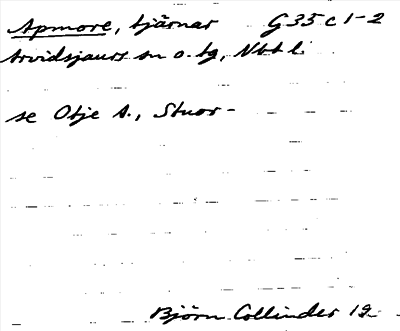 Apmore, tjärnar G 35 c 1-2
Arvidsjaurs sn o. tg, Nbt l.
se Otje A., Stuor-
Björn Collinder 19